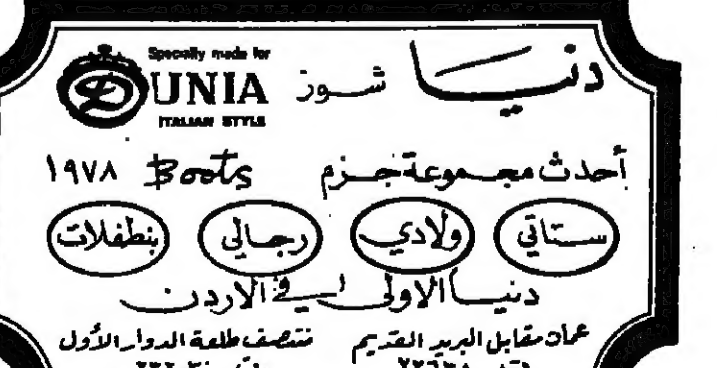 دنيا شوز
Specially made for
DUNIA
ITALIAN STYLE
أحدث مجموعة جزم Boots ١٩٧٨
ستاتي ولادي رجالي بنطفلات
دنيا الاولى في الاردن
عمان مقابل البريد القديم منتصف طلعة الدوار الأول